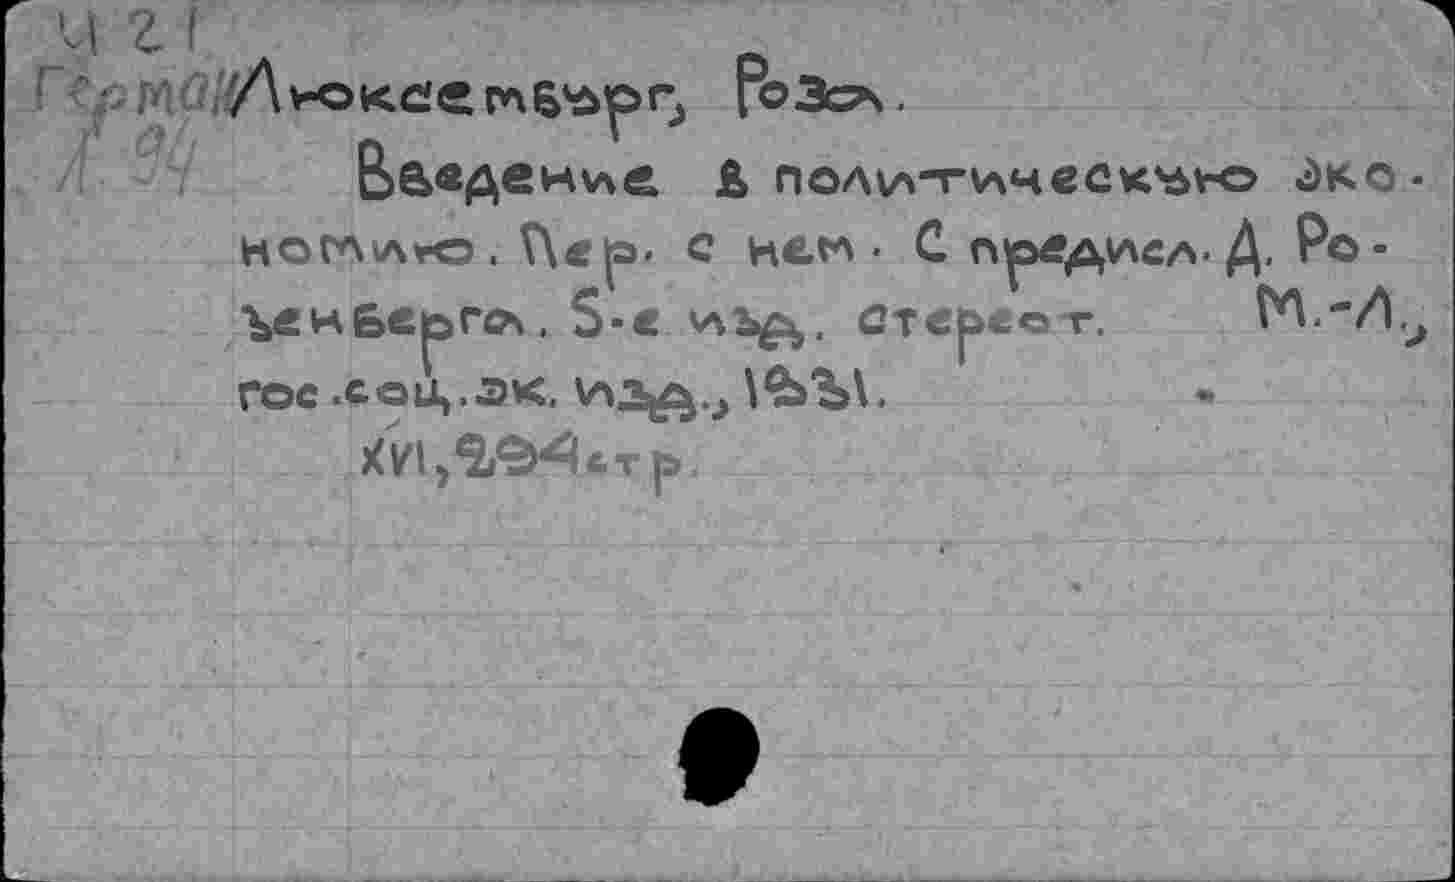 Ч 2 1
Герман Люксембург, Роза.
Л 94
Введение в политическую эко-
номию. Пер. с нем. С предисл. Д. Ро-
зенберга. 5-е изд. стереот. М.-Л.,
гос.соц.эк. изд., 1931.
XVI, 294 стр.